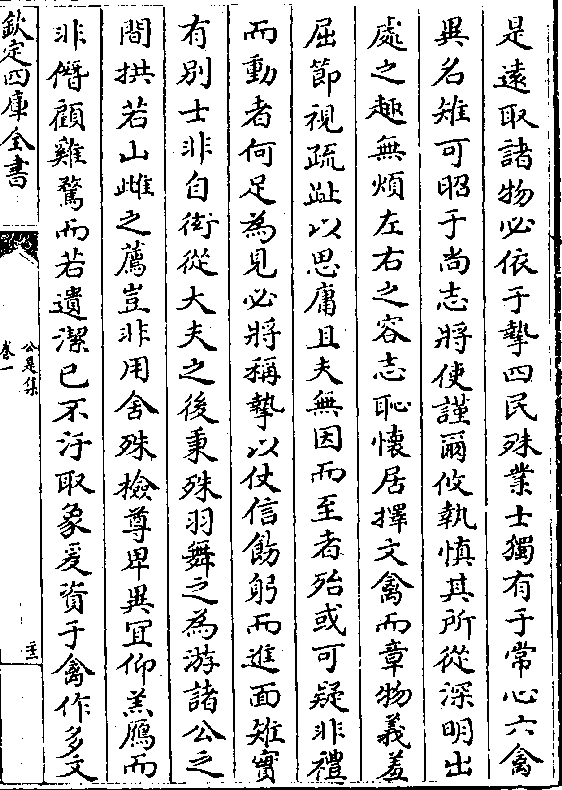 是遠取諸物必依于摯四民殊業士獨有于常心六禽
異名雉可昭于尚志將使謹爾攸執慎其所從深明出
處之趣無煩左右之容志恥懷居擇文禽而章物義羞
屈節視疏趾以思庸且夫無因而至者殆或可疑非禮
而動者何足為見必將稱摯以仗信飭躬而進面雉實
有别士非自衒從大夫之後秉殊羽舞之為游諸公之
間拱若山雌之薦豈非用舍殊撿尊卑異宜仰羔鴈而
非僭顧雞騖而若遺潔已不汙取象爰資于禽作多文
欽定四庫全書
公是集
卷一